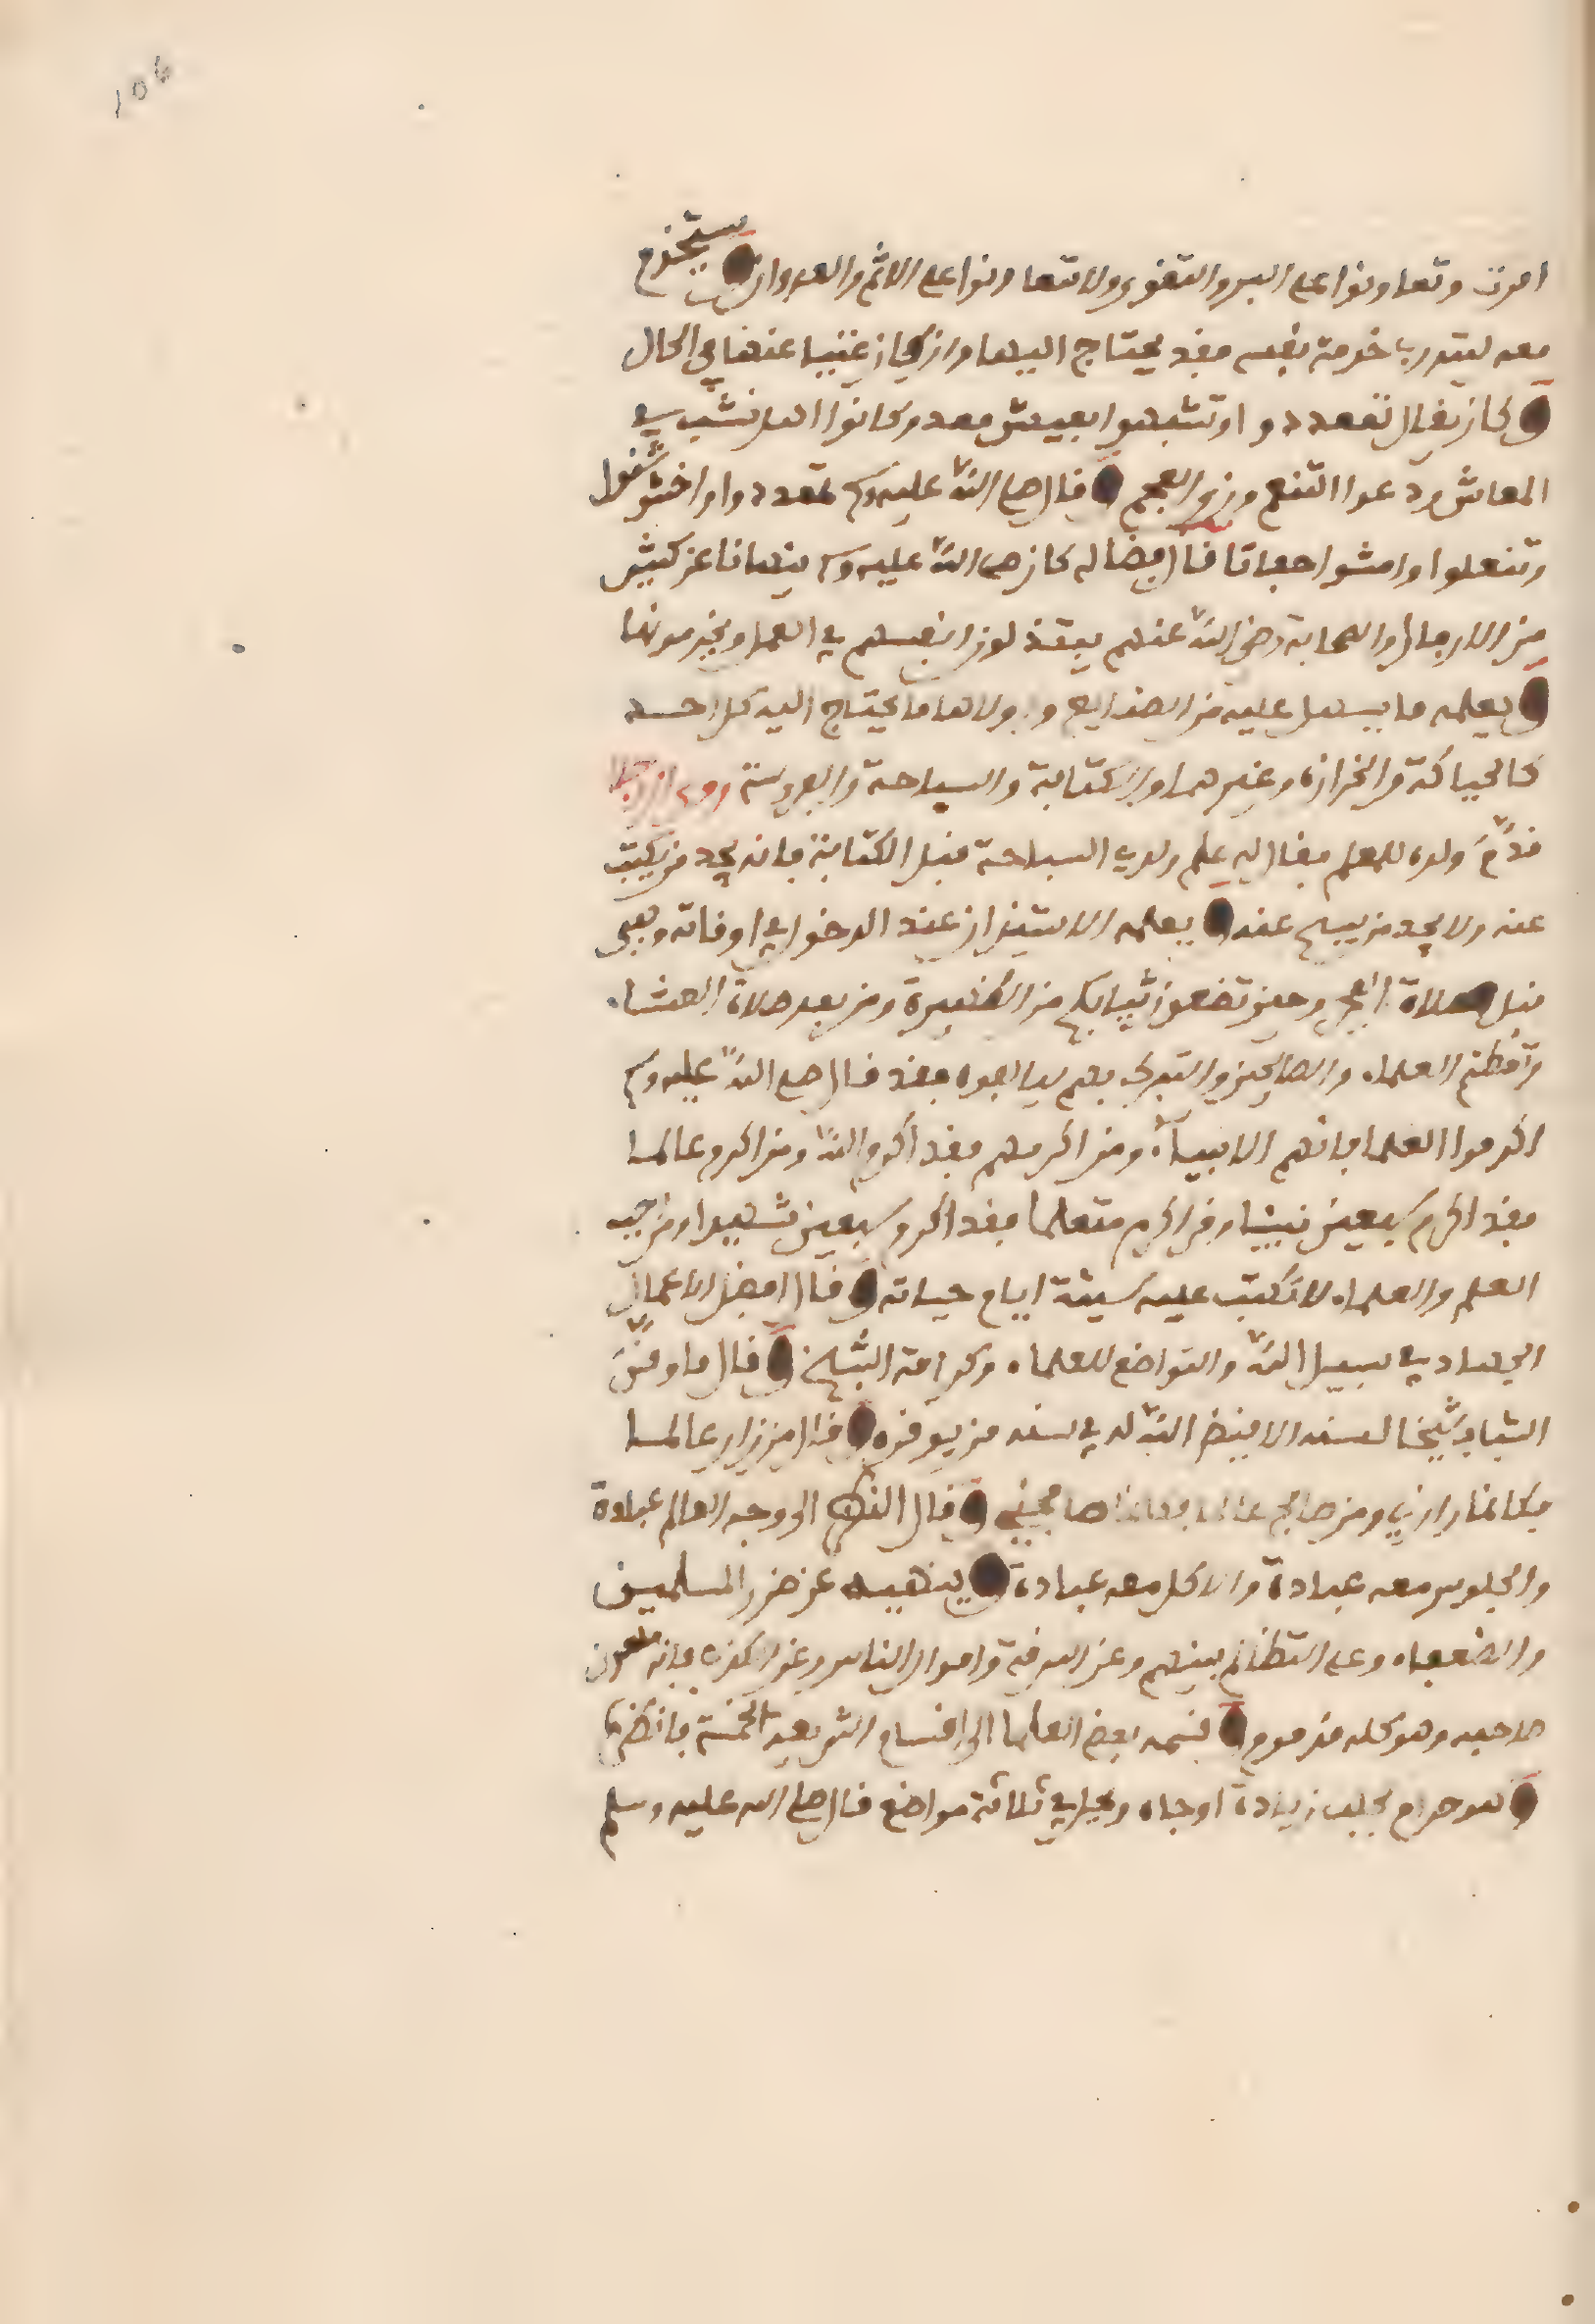 106
امرت وتعاونوا على البر والتقوى ولا تعاونوا على الاثم والعدوان و يستخدم
معه ليتدرب خدمة نفسه فقد يحتاج اليها وان كان غنيا عنها في الحال
و كان يقال تمعددوا وتشبهوا بعيش معد وكانوا اهل تشب في
المعاش ودعوا التنعم وزي العجم و قال صلى الله عليه وسلم تمعددوا واخشوشنوا
وتنعلوا وامشوا حفاتا قال فضاله كان صلى الله عليه وسلم ينهانا عن كثير
من الارفاه والصحابة رضي الله عنهم يبتذلون انفسهم في العمل ويخدمونها
و يعلمه ما يسهل عليه من الصنايع واولاها ما يحتاج اليه كل احد
كالحياكة والخرازة وغيرهما والكتابة والسباحة والفروسة روي ان رجلا
قدّم ولده للمعلم فقال له علم ولدي السباحة قبل الكتابة فانه يجد من يكتب
عنه ولا يجد من يسبح عنه و يعلمه الاستيذان عند الدخول في اوقاته وهي
قبل صلاة الفجر وحين تضعون ثيابكم من الظهيرة ومن بعد صلاة العشاء
وتعظيم العلماء والصالحين والتبرك بهم فقد قال صلى الله عليه وسلم
اكرموا العلما فانهم الانبياء ومن اكرمهم فقد اكرم الله ومن اكرم عالما
فقد اكرم سبعين نبيئا ومن اكرم متعلما فقد اكرم سبعين شهيدا ومن احب
العلم والعلماء لا تكتب عليه سيئة ايام حياته و قال افضل الاعمال
الجهاد في سبيل الله والتواضع للعلماء وكرامة الشيخ و قال ما وقّر
الشاب شيخا لسنه الا قيض الله له في سنه من يوقره و قال من زار عالما
فكانما زارني ومن صافح عالما فكانما صافحني و قال النظر الى وجه العالم عبادة
والجلوس معه عبادة والاكل معه عبادة و ينهيه عن ضرر المسلمين
والضعفاء وعن التظالم بينهم وعن السرقة واموال الناس وعن الكذب فانه ملعون
صاحبه وهو كله مذموم و قسمه بعض العلما الى اقسام الشريعة الخمسة فانظرها
و هو حرام لجلب زيادة او جاه ويحل في ثلاثة مواضع قال صلى الله عليه وسلم